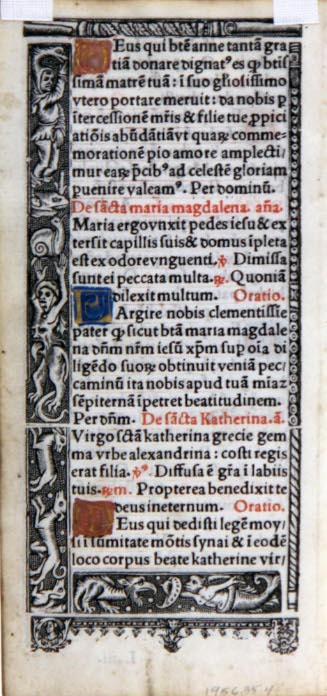 Deus qui btē anne tantā gra
tiā donare dignatꝰ es ꝙ btis
simā matrē tuā: ī suo gl̄osissimo
vtero portare meruit: da nobis ꝑ
ītercessionē mr̄is & filie tue, ꝓpici
atiōis abūdātiā vt quaꝝ comme-
morationē pio amore amplecti/
mur eaꝝ p̄cibꝰ ad celestē gloriam
ꝑuenire valeamꝰ. Per dominū.
De sācta maria magdalena. aña.
Maria ergo vnxit pedes iesu & ex
tersit capillis suis & domus īpleta
est ex odore vnguenti. ℣. Dimissa
sunt ei peccata multa. ℞. Quoniā
dilexit multum. Oratio.
Largire nobis clementissīe
pater ꝙ sicut btā maria magdale
na dn̄m nr̄m iesū xp̄m sup oīa di
ligēdo suoꝝ obtinuit veniā pec/
caminū ita nobis apud tuā mīaz
sēpiternā īpetret beatitudinem.
Per dn̄m. De sācta Katherina. ā.
Virgo sctā katherina grecie gem
ma vrbe alexandrina: costi regis
erat filia. ℣. Diffusa ē gr̄a ī labiis
tuis. ℞. Propterea benedixit te
deus in eternum. Oratio.
Deus qui dedisti legē moy/
si ī sumitate mōtis synai & ī eodē
loco corpus beate katherine vir/
1956.35 y